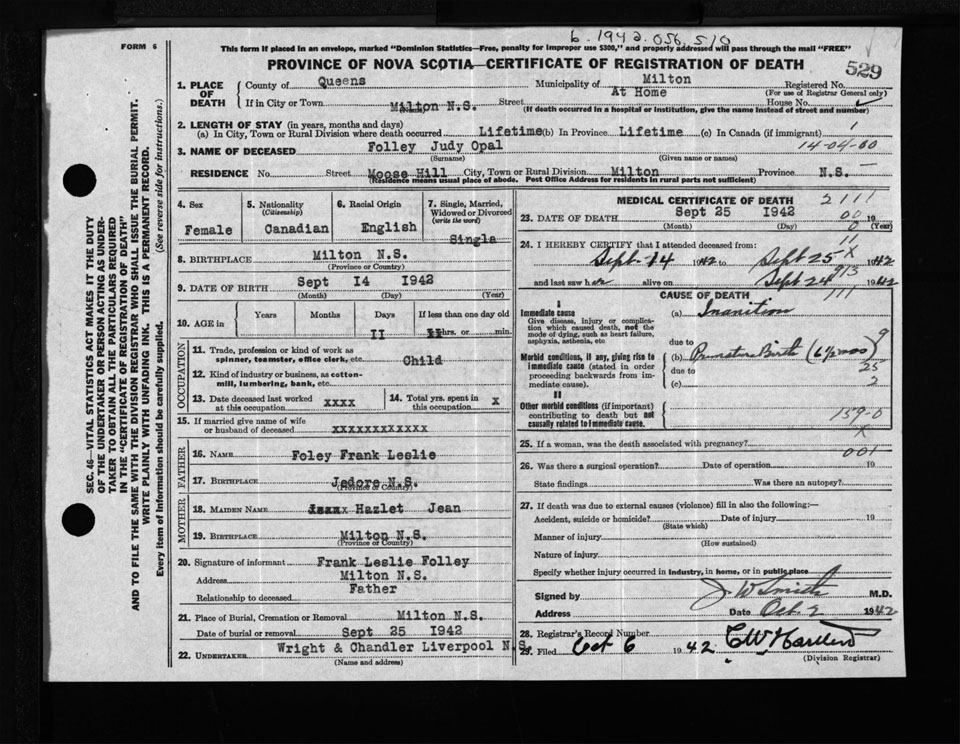 6.1942.056.510
FORM 6
This form if placed in an envelope, marked "Dominion Statistics—Free, penalty for improper use $300," and properly addressed will pass through the mail "FREE"
PROVINCE OF NOVA SCOTIA—CERTIFICATE OF REGISTRATION OF DEATH
529
1. PLACE OF DEATH
County of Queens Municipality of Milton Registered No.
(For use of Registrar General only)
If in City or Town Milton N.S. Street At Home House No.
(If death occurred in a hospital or institution, give the name instead of street and number)
2. LENGTH OF STAY (in years, months and days)
(a) In City, Town or Rural Division where death occurred Lifetime (b) In Province Lifetime (c) In Canada (if immigrant)
3. NAME OF DECEASED Folley Judy Opal 14-04-60
(Surname) (Given name or names)
RESIDENCE No. Street Moose Hill City, Town or Rural Division Milton Province N.S.
(Residence means usual place of abode. Post Office Address for residents in rural parts not sufficient)
4. Sex Female
5. Nationality (Citizenship) Canadian
6. Racial Origin English
7. Single, Married, Widowed or Divorced (write the word) Single
8. BIRTHPLACE Milton N.S.
(Province or Country)
9. DATE OF BIRTH Sept I4 1942
(Month) (Day) (Year)
10. AGE in Years Months Days If less than one day old
II hrs. or min.
OCCUPATION
11. Trade, profession or kind of work as spinner, teamster, office clerk, etc. Child
12. Kind of industry or business, as cotton-mill, lumbering, bank, etc.
13. Date deceased last worked at this occupation xxxx
14. Total yrs. spent in this occupation x
15. If married give name of wife or husband of deceased xxxxxxxxxxxx
FATHER
16. NAME Foley Frank Leslie
17. BIRTHPLACE Jedore N.S.
(Province or Country)
MOTHER
18. MAIDEN NAME Hazlet Jean
19. BIRTHPLACE Milton N.S.
(Province or Country)
20. Signature of informant Frank Leslie Folley
Address Milton N.S.
Relationship to deceased Father
21. Place of Burial, Cremation or Removal Milton N.S.
Date of burial or removal Sept 25 1942
22. UNDERTAKER Wright & Chandler Liverpool N.S.
(Name and address)
MEDICAL CERTIFICATE OF DEATH 2111
23. DATE OF DEATH Sept 25 1942 00 19
(Month) (Day) 0 (Year)
24. I HEREBY CERTIFY that I attended deceased from: 11
Sept 14 1942 to Sept 25 1942
and last saw her alive on Sept 24 1942
CAUSE OF DEATH 111
I
Immediate cause
Give disease, injury or complication which caused death, not the mode of dying, such as heart failure, asphyxia, asthenia, etc.
(a) Inanition
due to
Morbid conditions, if any, giving rise to immediate cause (stated in order proceeding backwards from immediate cause).
(b) Premature Birth (6½ mos) 9
due to 25
(c) 2
II
Other morbid conditions (if important) contributing to death but not causally related to immediate cause.
159-0
X
25. If a woman, was the death associated with pregnancy?
001
26. Was there a surgical operation? Date of operation 19
State findings Was there an autopsy?
27. If death was due to external causes (violence) fill in also the following:—
Accident, suicide or homicide? Date of injury 19
(State which)
Manner of injury
(How sustained)
Nature of injury
Specify whether injury occurred in industry, in home, or in public place
Signed by J W Smith M.D.
Address Date Oct. 2 1942
28. Registrar's Record Number
29. Filed Oct 6 1942
(Division Registrar)
SEC. 46—VITAL STATISTICS ACT MAKES IT THE DUTY
OF THE UNDERTAKER OR PERSON ACTING AS UNDER-
TAKER TO OBTAIN ALL THE PARTICULARS REQUIRED
IN THE "CERTIFICATE OF REGISTRATION OF DEATH"
AND TO FILE THE SAME WITH THE DIVISION REGISTRAR WHO SHALL ISSUE THE BURIAL PERMIT.
WRITE PLAINLY WITH UNFADING INK. THIS IS A PERMANENT RECORD.
Every item of information should be carefully supplied. (See reverse side for instructions.)